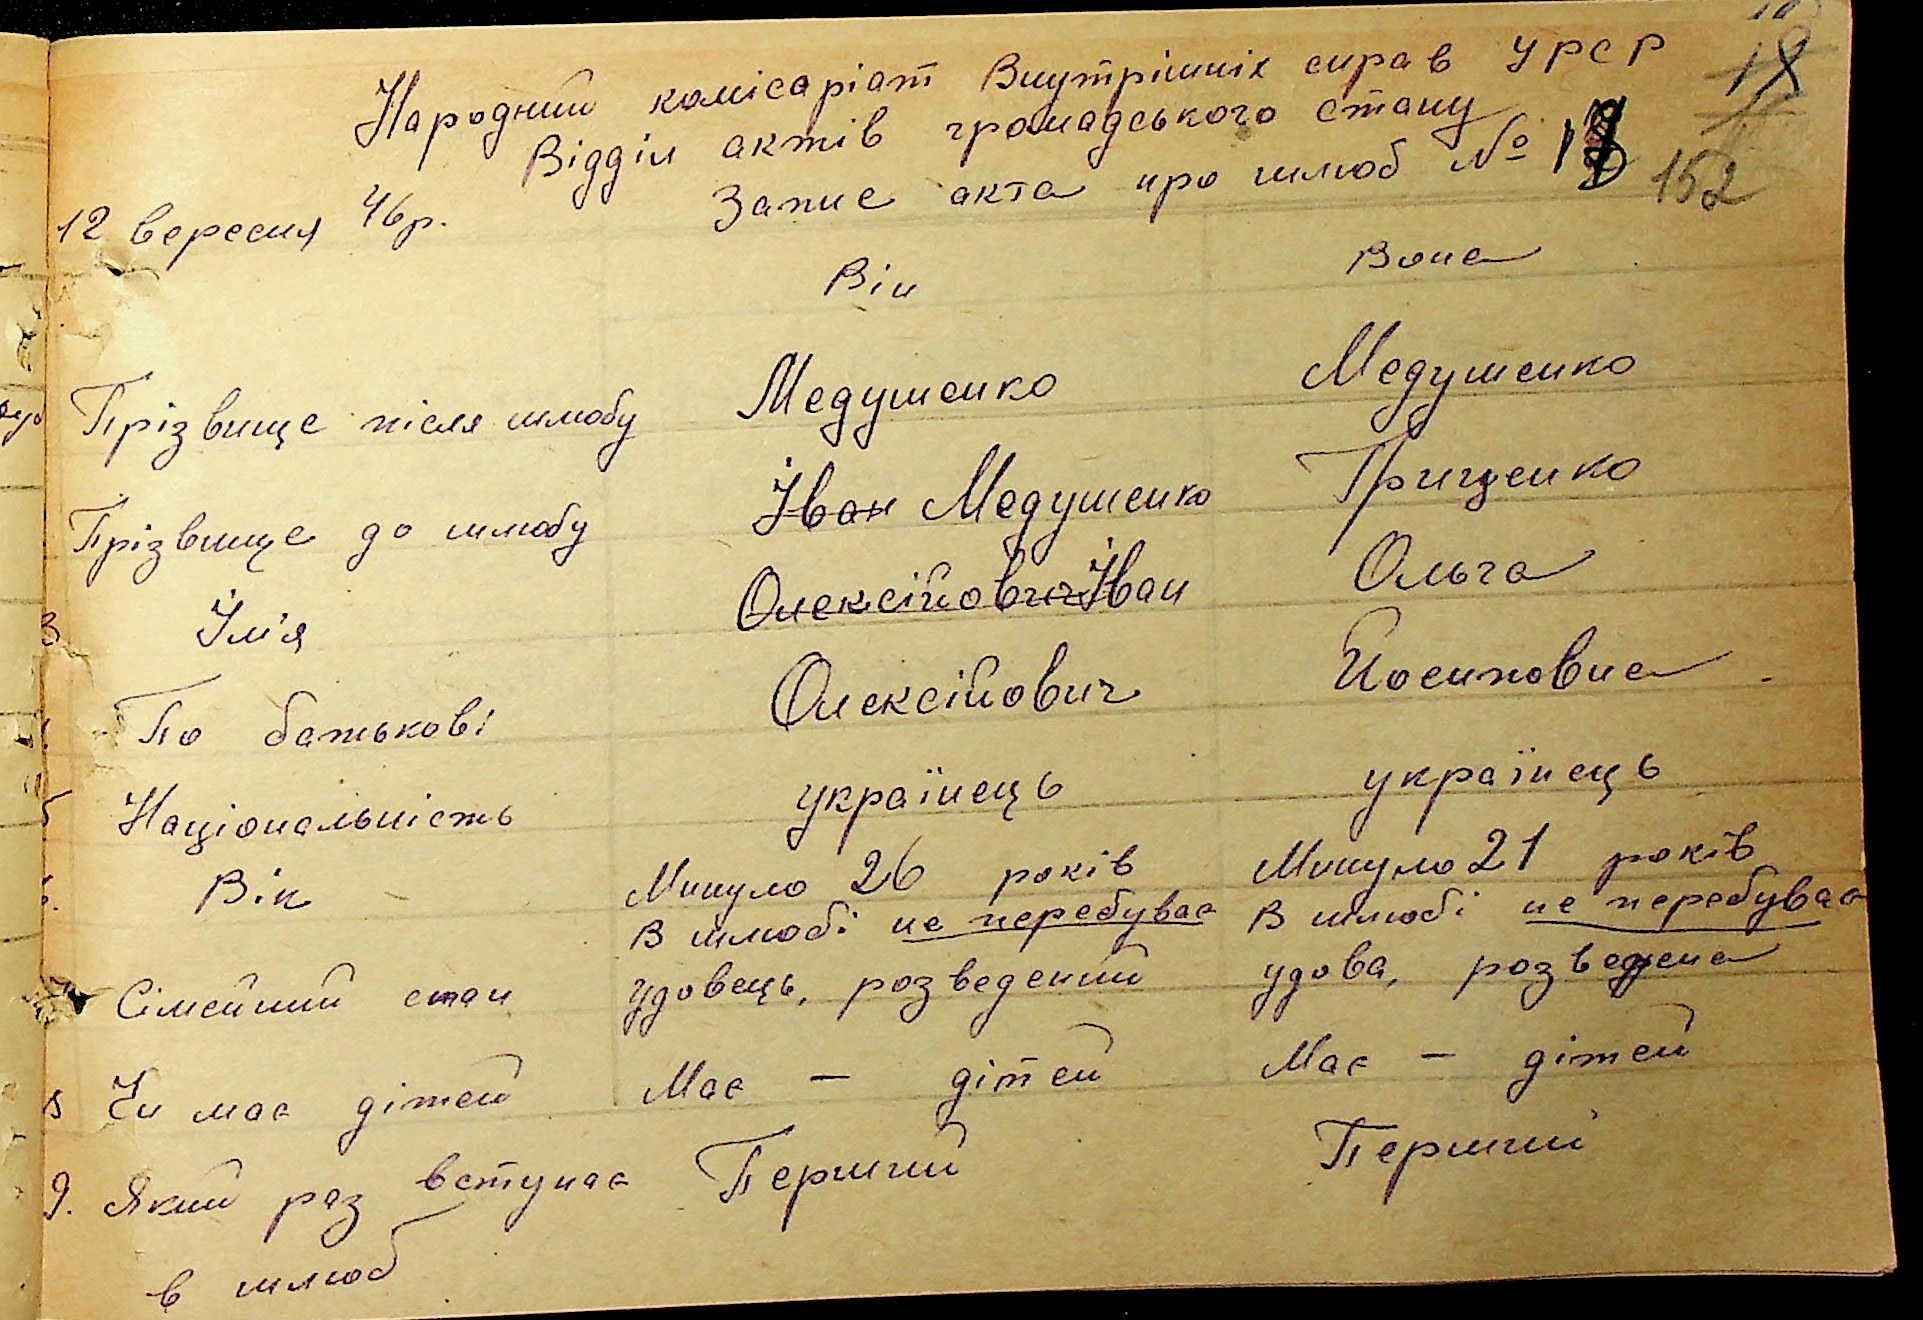 Народний комісаріат Внутрішніх справ УРСР
Відділ актів громадського стану
12 вересня 46р. Запис акта про шлюб № 152
Він Вона
Прізвище після шлюбу Медушенко Медушенко
Прізвище до шлюбу Іван Медушенко Гриценко
3 Ім'я Олексійович Іван Ольга
По батькові Олексійович Йосиповна
5 Національність українець українець
Вік Минуло 26 років Минуло 21 років
В шлюбі не перебуває В шлюбі не перебуває
Сімейний стан удовець, розведений удова, розведена
8 Чи має дітей Має — дітей Має — дітей
9. Який раз вступає Перший Перший
в шлюб